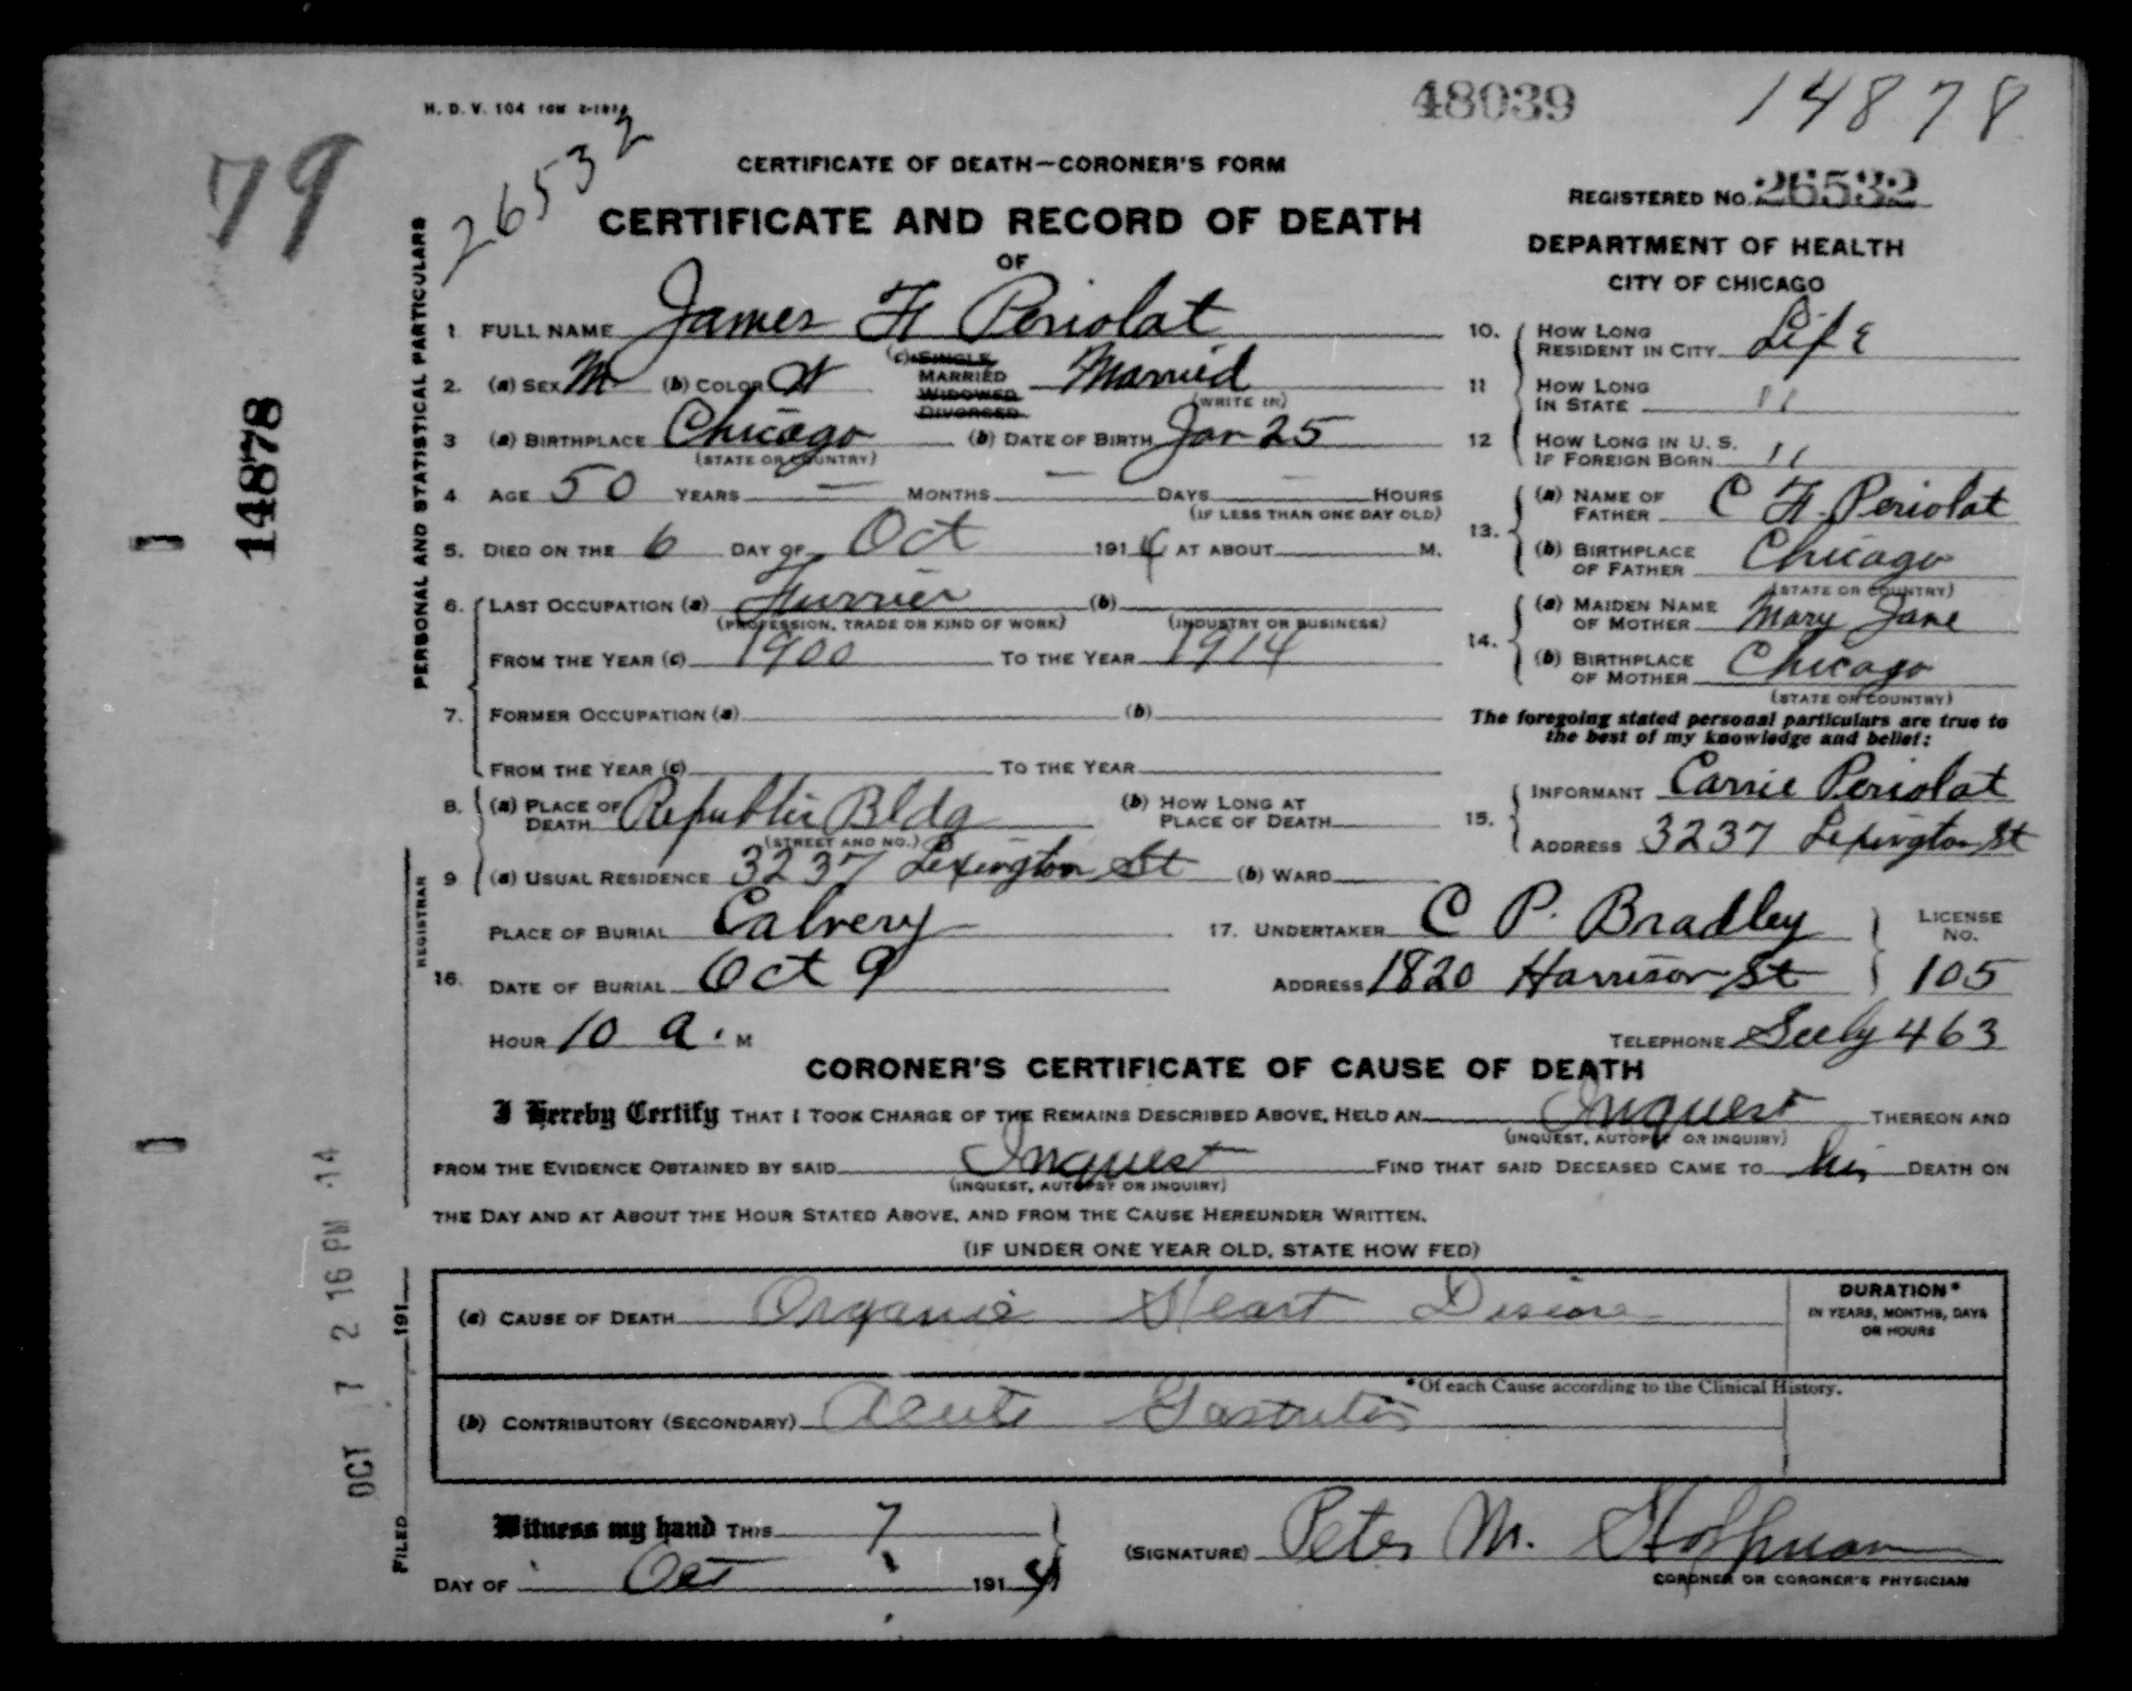 H. D. V. 104 10M 2-1914
48039
14878
79
26532
CERTIFICATE OF DEATH—CORONER'S FORM
REGISTERED NO. 26532
CERTIFICATE AND RECORD OF DEATH
DEPARTMENT OF HEALTH
CITY OF CHICAGO
OF
PERSONAL AND STATISTICAL PARTICULARS
1. FULL NAME James F. Periolat
2. (a) SEX M (b) COLOR W (c) SINGLE MARRIED WIDOWED DIVORCED Married
(WRITE IN)
3 (a) BIRTHPLACE Chicago (b) DATE OF BIRTH Jan 25
(STATE OR COUNTRY)
4 AGE 50 YEARS — MONTHS — DAYS — HOURS
(IF LESS THAN ONE DAY OLD)
5. DIED ON THE 6 DAY OF Oct 1914 AT ABOUT M.
6. LAST OCCUPATION (a) Furrier (b)
(PROFESSION, TRADE OR KIND OF WORK) (INDUSTRY OR BUSINESS)
FROM THE YEAR (c) 1900 TO THE YEAR 1914
7. FORMER OCCUPATION (a) (b)
FROM THE YEAR (c) TO THE YEAR
8. (a) PLACE OF DEATH Republic Bldg (b) HOW LONG AT PLACE OF DEATH
(STREET AND NO.)
9 (a) USUAL RESIDENCE 3237 Lexington St (b) WARD
10. HOW LONG RESIDENT IN CITY Life
11 HOW LONG IN STATE "
12 HOW LONG IN U. S. IF FOREIGN BORN "
13. (a) NAME OF FATHER C F. Periolat
(b) BIRTHPLACE OF FATHER Chicago
(STATE OR COUNTRY)
14. (a) MAIDEN NAME OF MOTHER Mary Jane
(b) BIRTHPLACE OF MOTHER Chicago
(STATE OR COUNTRY)
The foregoing stated personal particulars are true to
the best of my knowledge and belief:
15. INFORMANT Carrie Periolat
ADDRESS 3237 Lexington St
REGISTRAR
16. PLACE OF BURIAL Calvery
DATE OF BURIAL Oct 9
HOUR 10 a. M
17. UNDERTAKER C P. Bradley LICENSE NO.
ADDRESS 1820 Harrison St 105
TELEPHONE Seely 463
CORONER'S CERTIFICATE OF CAUSE OF DEATH
I Hereby Certify THAT I TOOK CHARGE OF THE REMAINS DESCRIBED ABOVE, HELD AN Inquest THEREON AND
(INQUEST, AUTOPSY OR INQUIRY)
FROM THE EVIDENCE OBTAINED BY SAID Inquest FIND THAT SAID DECEASED CAME TO his DEATH ON
(INQUEST, AUTOPSY OR INQUIRY)
THE DAY AND AT ABOUT THE HOUR STATED ABOVE, AND FROM THE CAUSE HEREUNDER WRITTEN.
(IF UNDER ONE YEAR OLD, STATE HOW FED)
(a) CAUSE OF DEATH Organic Heart Disease
DURATION*
IN YEARS, MONTHS, DAYS
OR HOURS
*Of each Cause according to the Clinical History.
(b) CONTRIBUTORY (SECONDARY) Acute Gastritis
Witness my hand THIS 7
DAY OF Oct 1914
(SIGNATURE) Peter M. Hoffman
CORONER OR CORONER'S PHYSICIAN
14878
OCT 7 2 16 PM '14
FILED 191